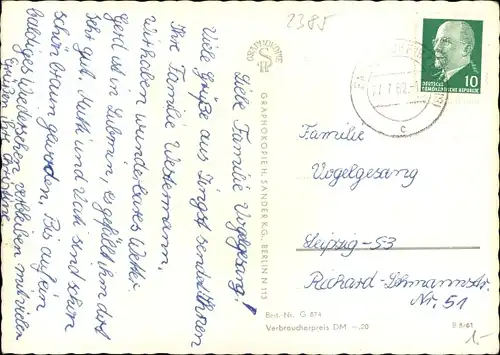 2385
Liebe Familie Vogelgesang!
Viele Grüße aus Zingst sendet Ihnen
Ihre Familie Westermann.
Wir haben wunderbares Wetter.
Gerd ist in Lubmin, es gefällt ihm dort
sehr gut. Mutti und Vati sind schon
schön braun geworden. Bis auf ein
baldiges Wiedersehen verbleiben mit vielen
Grüßen Ihre Christine
GRAPHOKOPIE
GRAPHOKOPIE H. SANDER K.G., BERLIN N 113
DEUTSCHE
DEMOKRATISCHE REPUBLIK
10
c
Familie
Vogelgesang
Leipzig-S3
Richard-Lehmannstr.
Nr. 51
Best.-Nr. G 874
Verbraucherpreis DM -,20
B 8/61
1.-